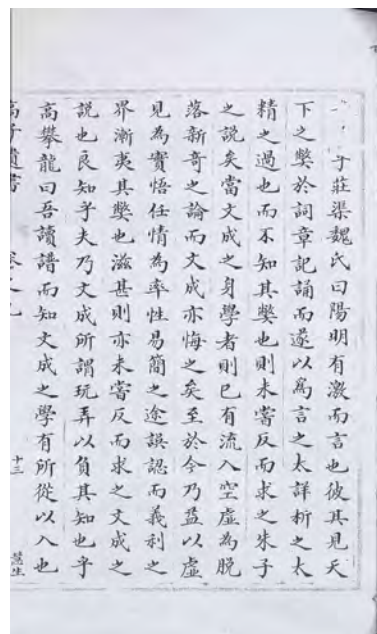 子莊渠魏氏曰陽明有激而言也彼其見天
下之弊於詞章記誦而遂以爲言之太詳析之太
精之過也而不知其弊也則未嘗反而求之朱子
之說矣當文成之身學者則已有流入空虛為脫
落新奇之論而文成亦悔之矣至於今乃益以虛
見為實悟任情為率性易簡之途誤認而義利之
界漸夷其弊也滋甚則亦未嘗反而求之文成之
說也良知乎夫乃文成所謂玩弄以負其知也乎
高攀龍曰吾讀譜而知文成之學有所從以入也
高子遺書
卷之九
十三